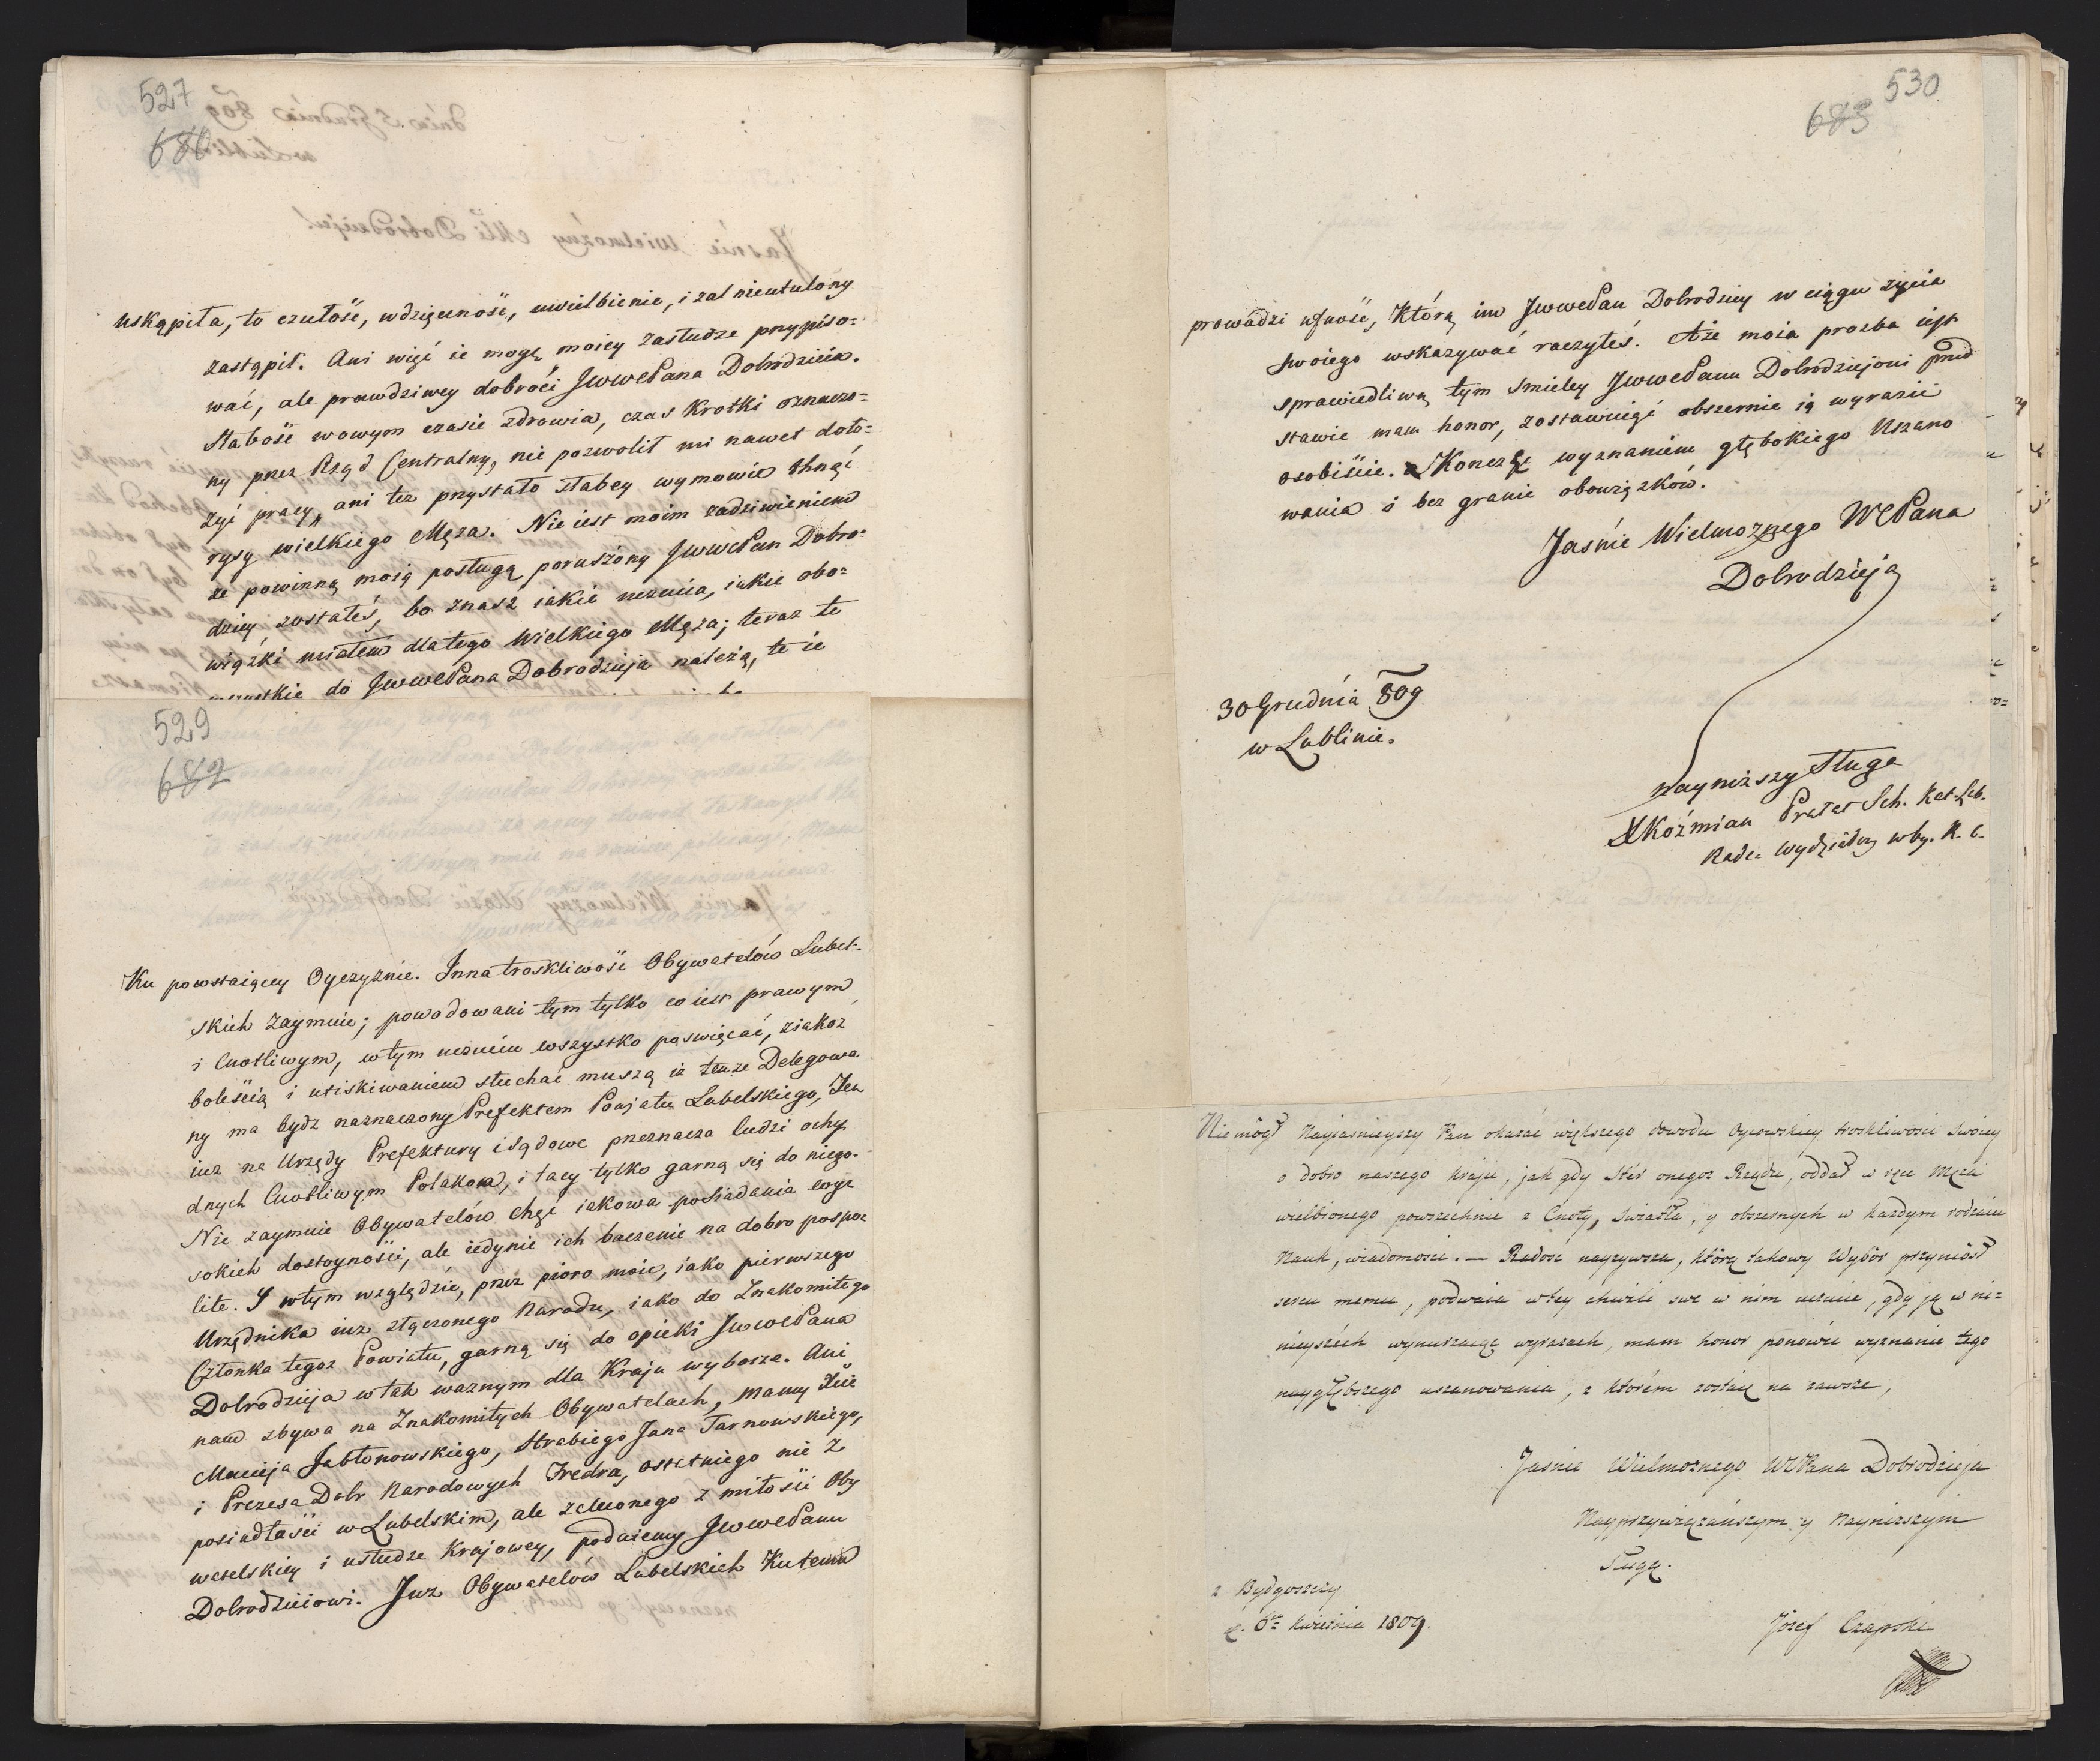 527
680
uskąpiła, to czułość, wdzięczność, uwielbienie, i zal nieutulony
zastąpił. Ani więć ie mogę moiey zasłudze przypiso=
wać, ale prawdziwey dobroći JWWePana Dobrodzieia.
Słabość wowym czasie zdrowia, czas krotki oznaczo=
ny przez Rząd Centralny, nie pozwolił mi nawet doło=
żyć pracy, ani tez przystało słabey wymowie thnąć
rysy wielkiego Męza. Nie iest moim zadziwieniem
ze powinną moią posługą poruszony JWWePan Dobro=
dziey zostałeś, bo znasz iakie uczucia, iakie obo=
wiązki miałem dlatego Wielkiego Męza; teraz te
wszystkie do JWWePana Dobrodzieja należą, te ie
529
682
Ku powstaiącey Oyczyznie. Inna troskliwość Obywatelów Lubel=
skich zaymuie; powodowani tym tylko co iest prawym
i Cnotliwym, wtym uczuciu wszystko poswięcać, ziakoz
boleścią i utiskiwaniem słuchać muszą iz tenze Delegowa
ny ma bydz naznaczony Prefektem Powiatu Lubelskiego, Ten
iuz na Urzędy Prefektury i Sądowe przeznacza ludzi ochy
dnych Cnotliwym Polakom, i tacy tylko garną się do niego.
Nie zaymuie Obywatelów chęć iakowa posiadania wyż
sokich dostoyności, ale iedynie ich baczenie na dobro pospo=
lite. I wtym względzie, przez pioro moie, iako pierwszego
Urzędnika iuz złączonego Narodu, iako do Znakomitego
Członka tegoz Powiatu, garną się do opieki JWWePana
Dobrodzieja wtak waznym dla Kraju wyborze. Ani
nam zbywa na Znakomitych Obywatelach, mamy Xcie
Macieja Jabłonowskiego, Hrabiego Jana Tarnowskiego,
i Prezesa Dobr Narodowych Fredra, ostatniego nie z
posiadłości w Lubelskim, ale zalconego z miłości Oby
watelskiey i usłudze Krajowey, podaiemy JWWePanu
Dobrodzieiowi. Juz Obywatelów Lubelskich Kutemu
530
683
prowadzi ufność, Którą im JWWePan Dobrodziey w ciągu życia
swoiego wskazywać raczyłeś. Aże moia prozba iest
sprawiedliwą tym smieley JWWePanu Dobrodziejowi przed
stawić mam honor, zostawuiąć obszernie ią wyrazić
osobiście. Konczę wyznaniem głębokiego Uszano
wania i bez granic obowiązków.
Jaśnie Wielmoznego WePana
Dobrodzieja
30 Grudnia 809
w Lublinie.
nayniższy Sługa
XKoźmian Prałat Sch. Kat. Lub.
Radca Wydziałowy w by. R. C.
Nie mógł Nayiasnieyszy Pan okazać większego dowodu Oycowskiey troskliwosci Swoiey
o dobro naszego kraju, jak gdy Ster onegoz Rządu, oddał w ręce Męża
wielbionego powszechnie z Cnoty, Światła, y obszernych w każdym rodzaiu
Nauk, wiadomosci. — Radość nayżywsza, którą takowy Wybór przyniósł
sercu memu, podwaia wtey chwili swe w nim uczucie, gdy ją w ni=
nieyszéch wynurzaiąc wyrazach, mam honor ponowić wyznanie tego
naygłębszego uszanowania, z którém zostaię na zawsze,
Jasnie Wielmoznego WePana Dobrodzieja
Nayprzywiązańszym y Nayniższym
Sługą.
z Bydgoszczy
d. 6go Kwietnia 1809.
Józef Czapski